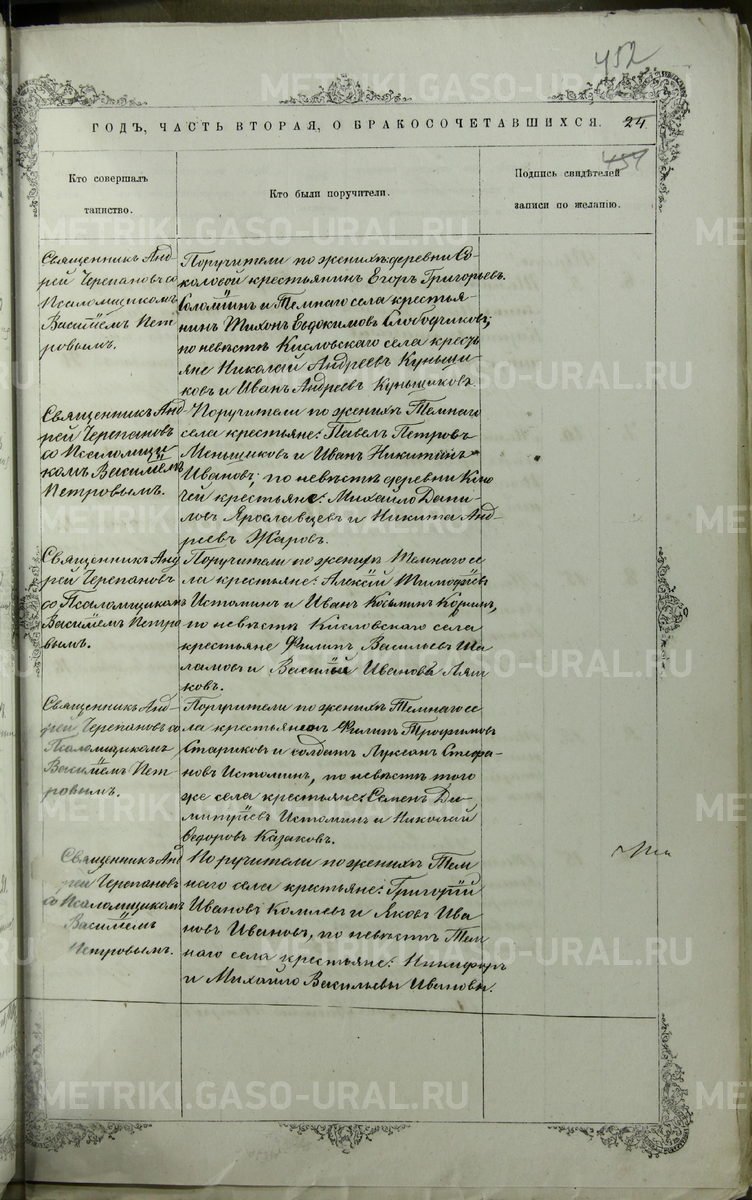 452
ГОДЪ, ЧАСТЬ ВТОРАЯ, О БРАКОСОЧЕТАВШИХСЯ. 24
Кто совершалъ
таинство.
Кто были поручители.
Подпись свидѣтелей
записи по желанію.
Священникъ Анд-
рей Черепановъ со
Псаломщикомъ
Василіемъ Пет-
ровымъ.
Поручители по женихѣ: деревни Со-
коловой крестьянинъ Егоръ Григорьевъ
Соломѣинъ и Темнаго села крестья-
нинъ Тихонъ Евдокимовъ Слободчиковъ;
по невѣстѣ Кисловскаго села кресть-
яне Николай Андреевъ Куньщи-
ковъ и Иванъ Андреевъ Куньщиковъ.
Священникъ Анд-
рей Черепановъ
со Псаломщи-
комъ Василіемъ
Петровымъ.
Поручители по женихѣ Темнаго
села крестьяне: Павелъ Петровъ
Меньщиковъ и Иванъ Никитинъ
Ивановъ; по невѣстѣ деревни Клю-
чей крестьяне: Михайло Дани-
ловъ Ярославцевъ и Никита Анд-
реевъ Жаровъ.
Священникъ Анд-
рей Черепановъ
со Псаломщикомъ
Василіемъ Петро-
вымъ.
Поручители по женихѣ Темнаго се-
ла крестьяне: Алексѣй Тимофѣевъ
Истоминъ и Иванъ Козьминъ
по невѣстѣ Кисловскаго села
крестьяне Филипъ Васильевъ Ша-
ламовъ и Василій Ивановъ Ляш-
ковъ.
Священникъ Анд-
рей Черепановъ со
Псаломщикомъ
Василіемъ Пет-
ровымъ.
Поручители по женихѣ Темнаго се-
ла Филипъ Трофимовъ
Стариковъ и солдатъ Стефа-
новъ Истоминъ, по невѣстѣ того
же села крестьяне: Семенъ Ди-
митріевъ Истоминъ и Николай
Ѳедоровъ Казаковъ.
Священникъ Анд-
рей Черепановъ
со Псаломщикомъ
Василіемъ
Петровымъ.
Поручители по женихѣ Тем-
наго села крестьяне: Григорій
Ивановъ Комлевъ и Яковъ Ива-
новъ Ивановъ, по невѣстѣ Тем-
наго села крестьяне: Никифоръ
и Михайло Васильевы Ивановы.
METRIKI.GASO-URAL.RU
METRIKI.GASO-URAL.RU
METRIKI.GASO-URAL.RU
METRIKI.GASO-URAL.RU
METRIKI.GASO-URAL.RU
METRIKI.GASO-URAL.RU
METRIKI.GASO-URAL.RU
METRIKI.GASO-URAL.RU